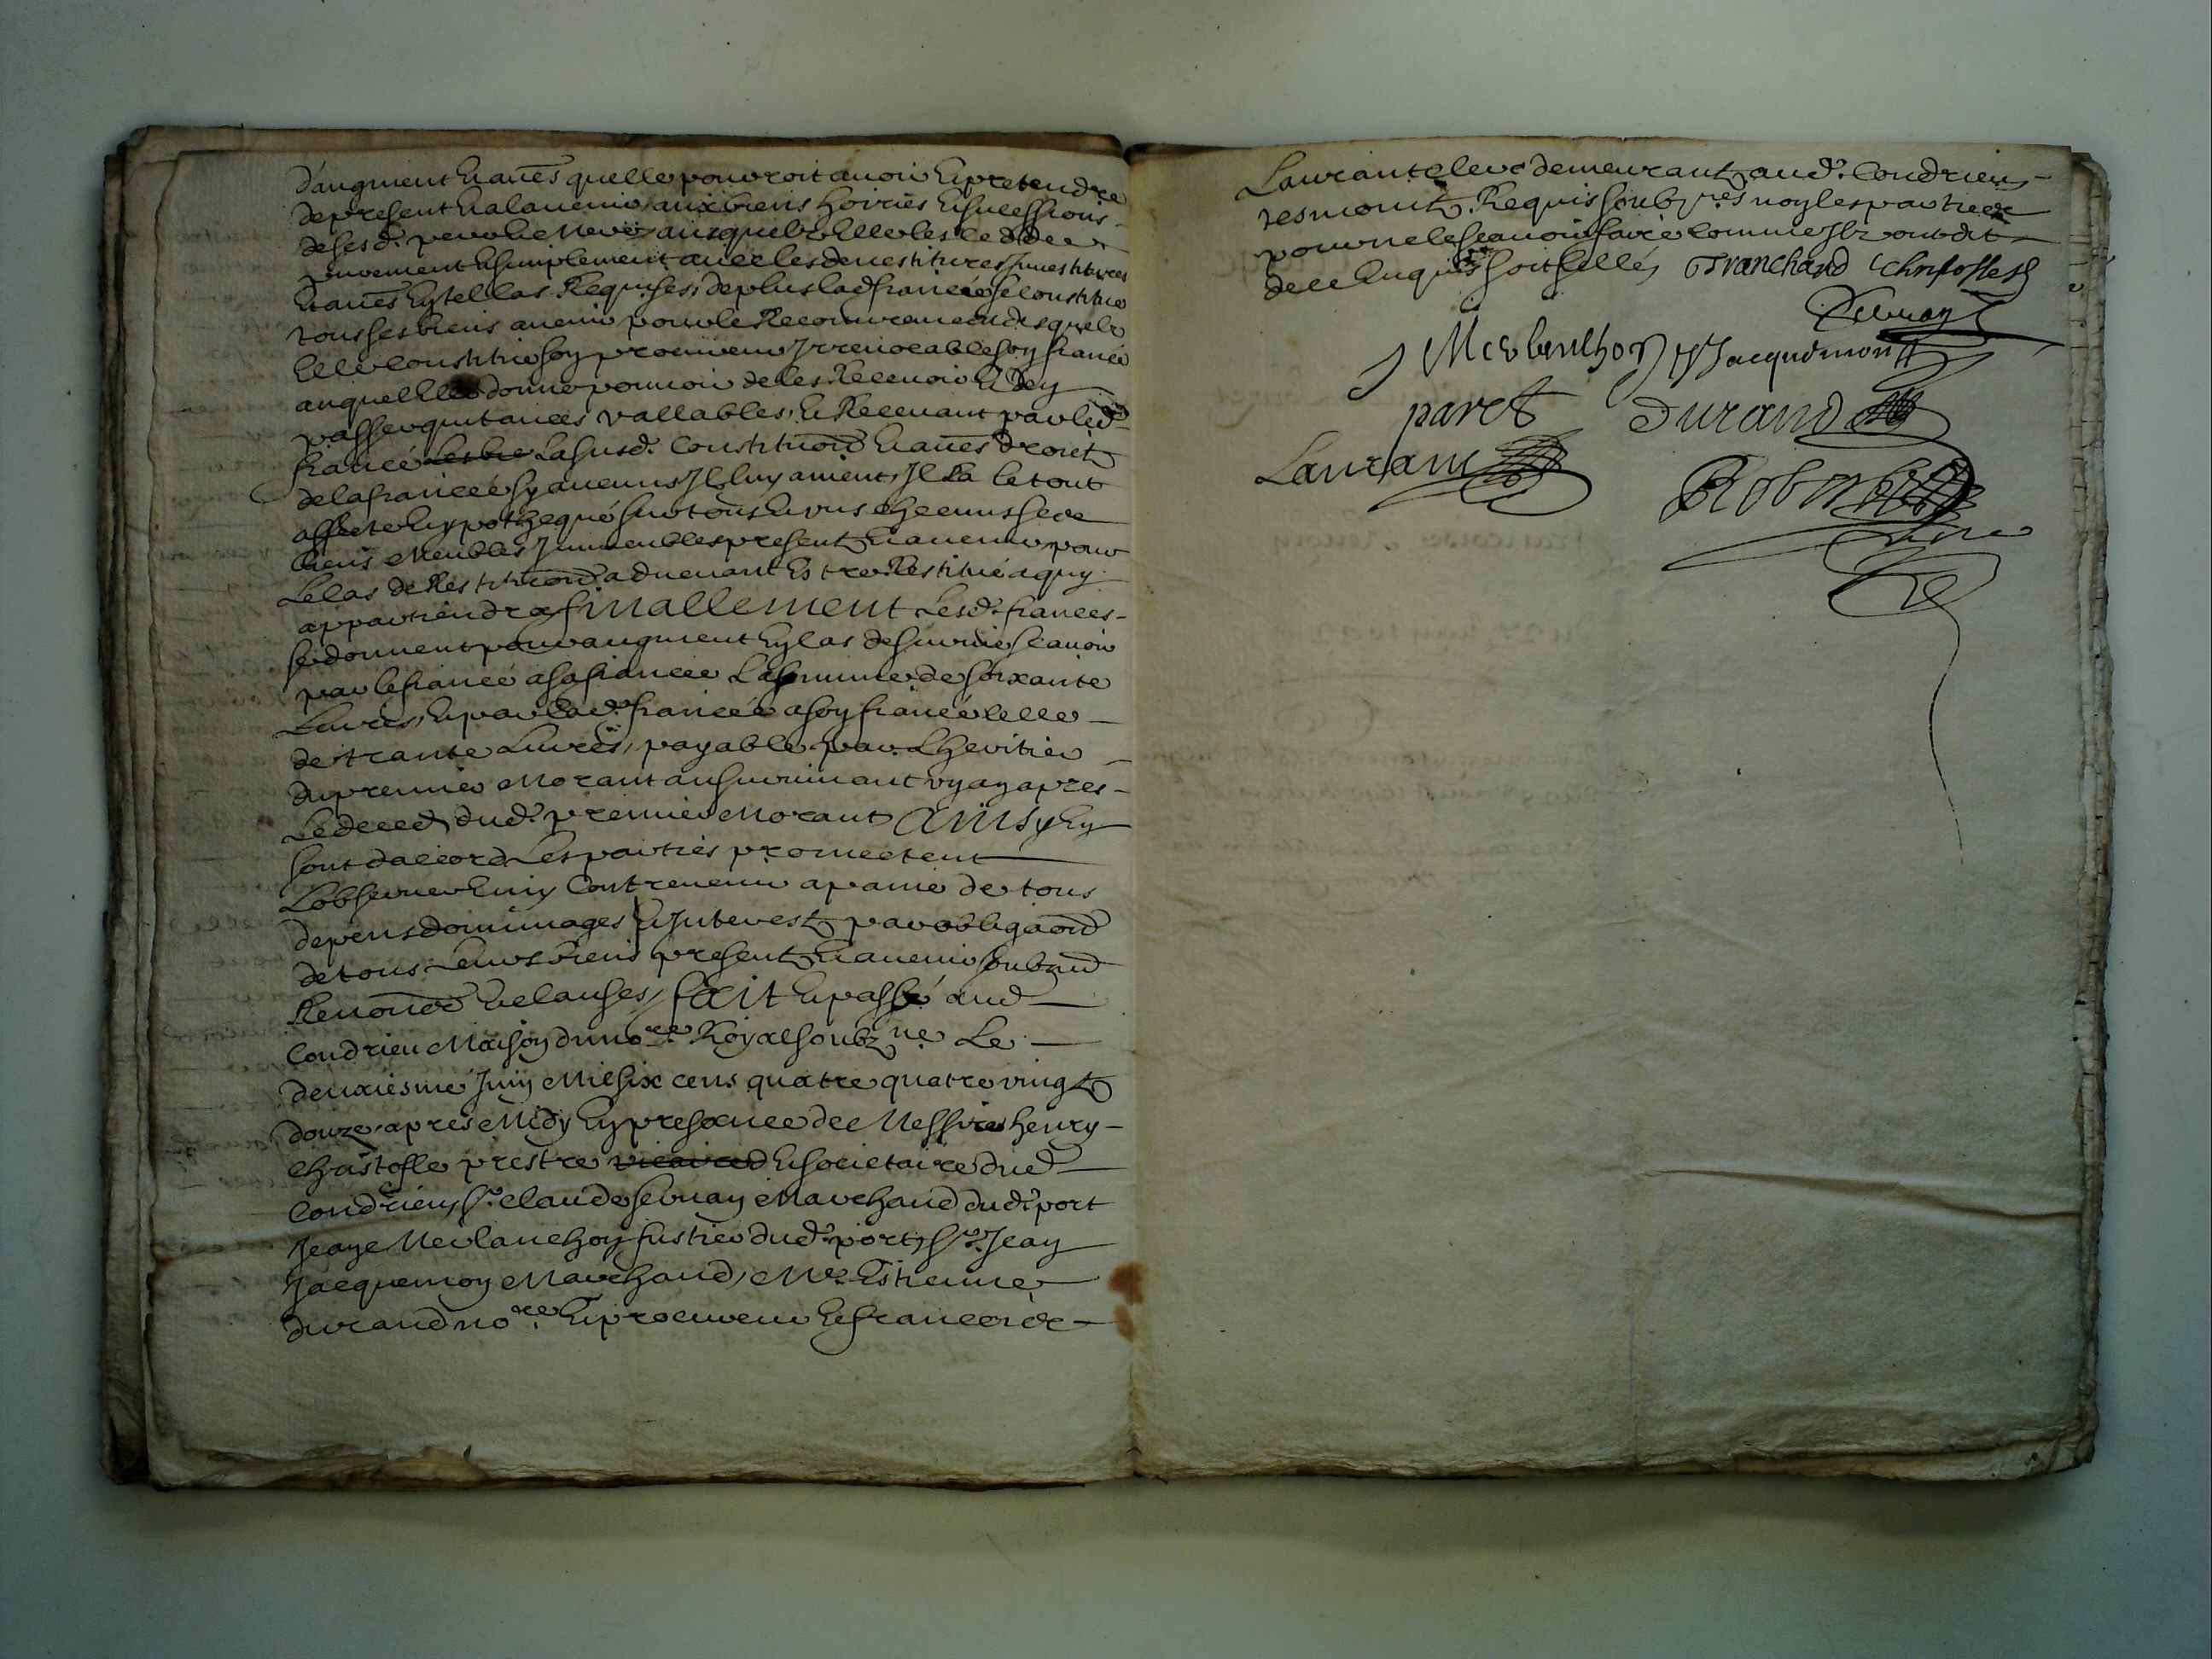 d'augment & autres quelle pouvroit avoir & pretendre
de present & a ladvenir aux biens hoiries & sucessions
de ses d. pere & mere ausquels elle les cedde
purement & simplement avec les devestitures Jnvestitures
& autres en tel cas Requises, de plus lad fiancée se constitue
tous ses biens avenir pour le Recouvrement desquels
elle constitue son procureur Jrrevocable son fiancé
auquel elle donne pouvoir de les Recevoir & d'en
passer quitances vallables, & Recevant par led
fiancé la susd. constitution & autres droits
de la fiancée sy aucuns Jl luy avient, Jl la le tout
affecte & ypothequé sur tous & uns checuns ses
biens Meubles Jmmeubles presents & avenir pour
le cas de Restitution advenant Estre Restitué a quy
appartiendra finallement Lesd. fiances
se donnent pour augment en cas de survie scavoir
par le fiancé a sa fiancée la somme de soixante
Livres, & par lad. fiancée a son fiancé celle
de trante Livres, payable par Lheritier
du premier Morant au survivant un an apres
Le deced dud. premier Morant Ainsy En
sont d'accord Les parties promectent
Lobserver & ny contrevenir a paine de tous
depens dommages & Jnterests par obligaon
de tous Leurs biens presents & avenir soubzmis
Renonce & clauses, fait & passé aud
Condrieu Maison du no.re Royal soubz.ne Le
deuxiesme Juin Mil six cens quatre quatre vingts
douze apres Midy En presance de Messire henry
Christofle prestre vicaire & societaire dud
Condrieu, Sr. claude servan Marchand dud. port
Jean Merlanchon fustier dud. port, Sr. Jean
Jacquemon Marchand, Mr. Estienne
durand no.re & procureur & francois
Laurant clerc demeurants aud. Condrieu
tesmoins Requis soubz.nés non les parties
pour ne le scavoir faire comme Jls ont dit
de ce Enquis soit sellés Tranchand Christofle
Servan
Jacquemont
paret Durand
Laurant Robert